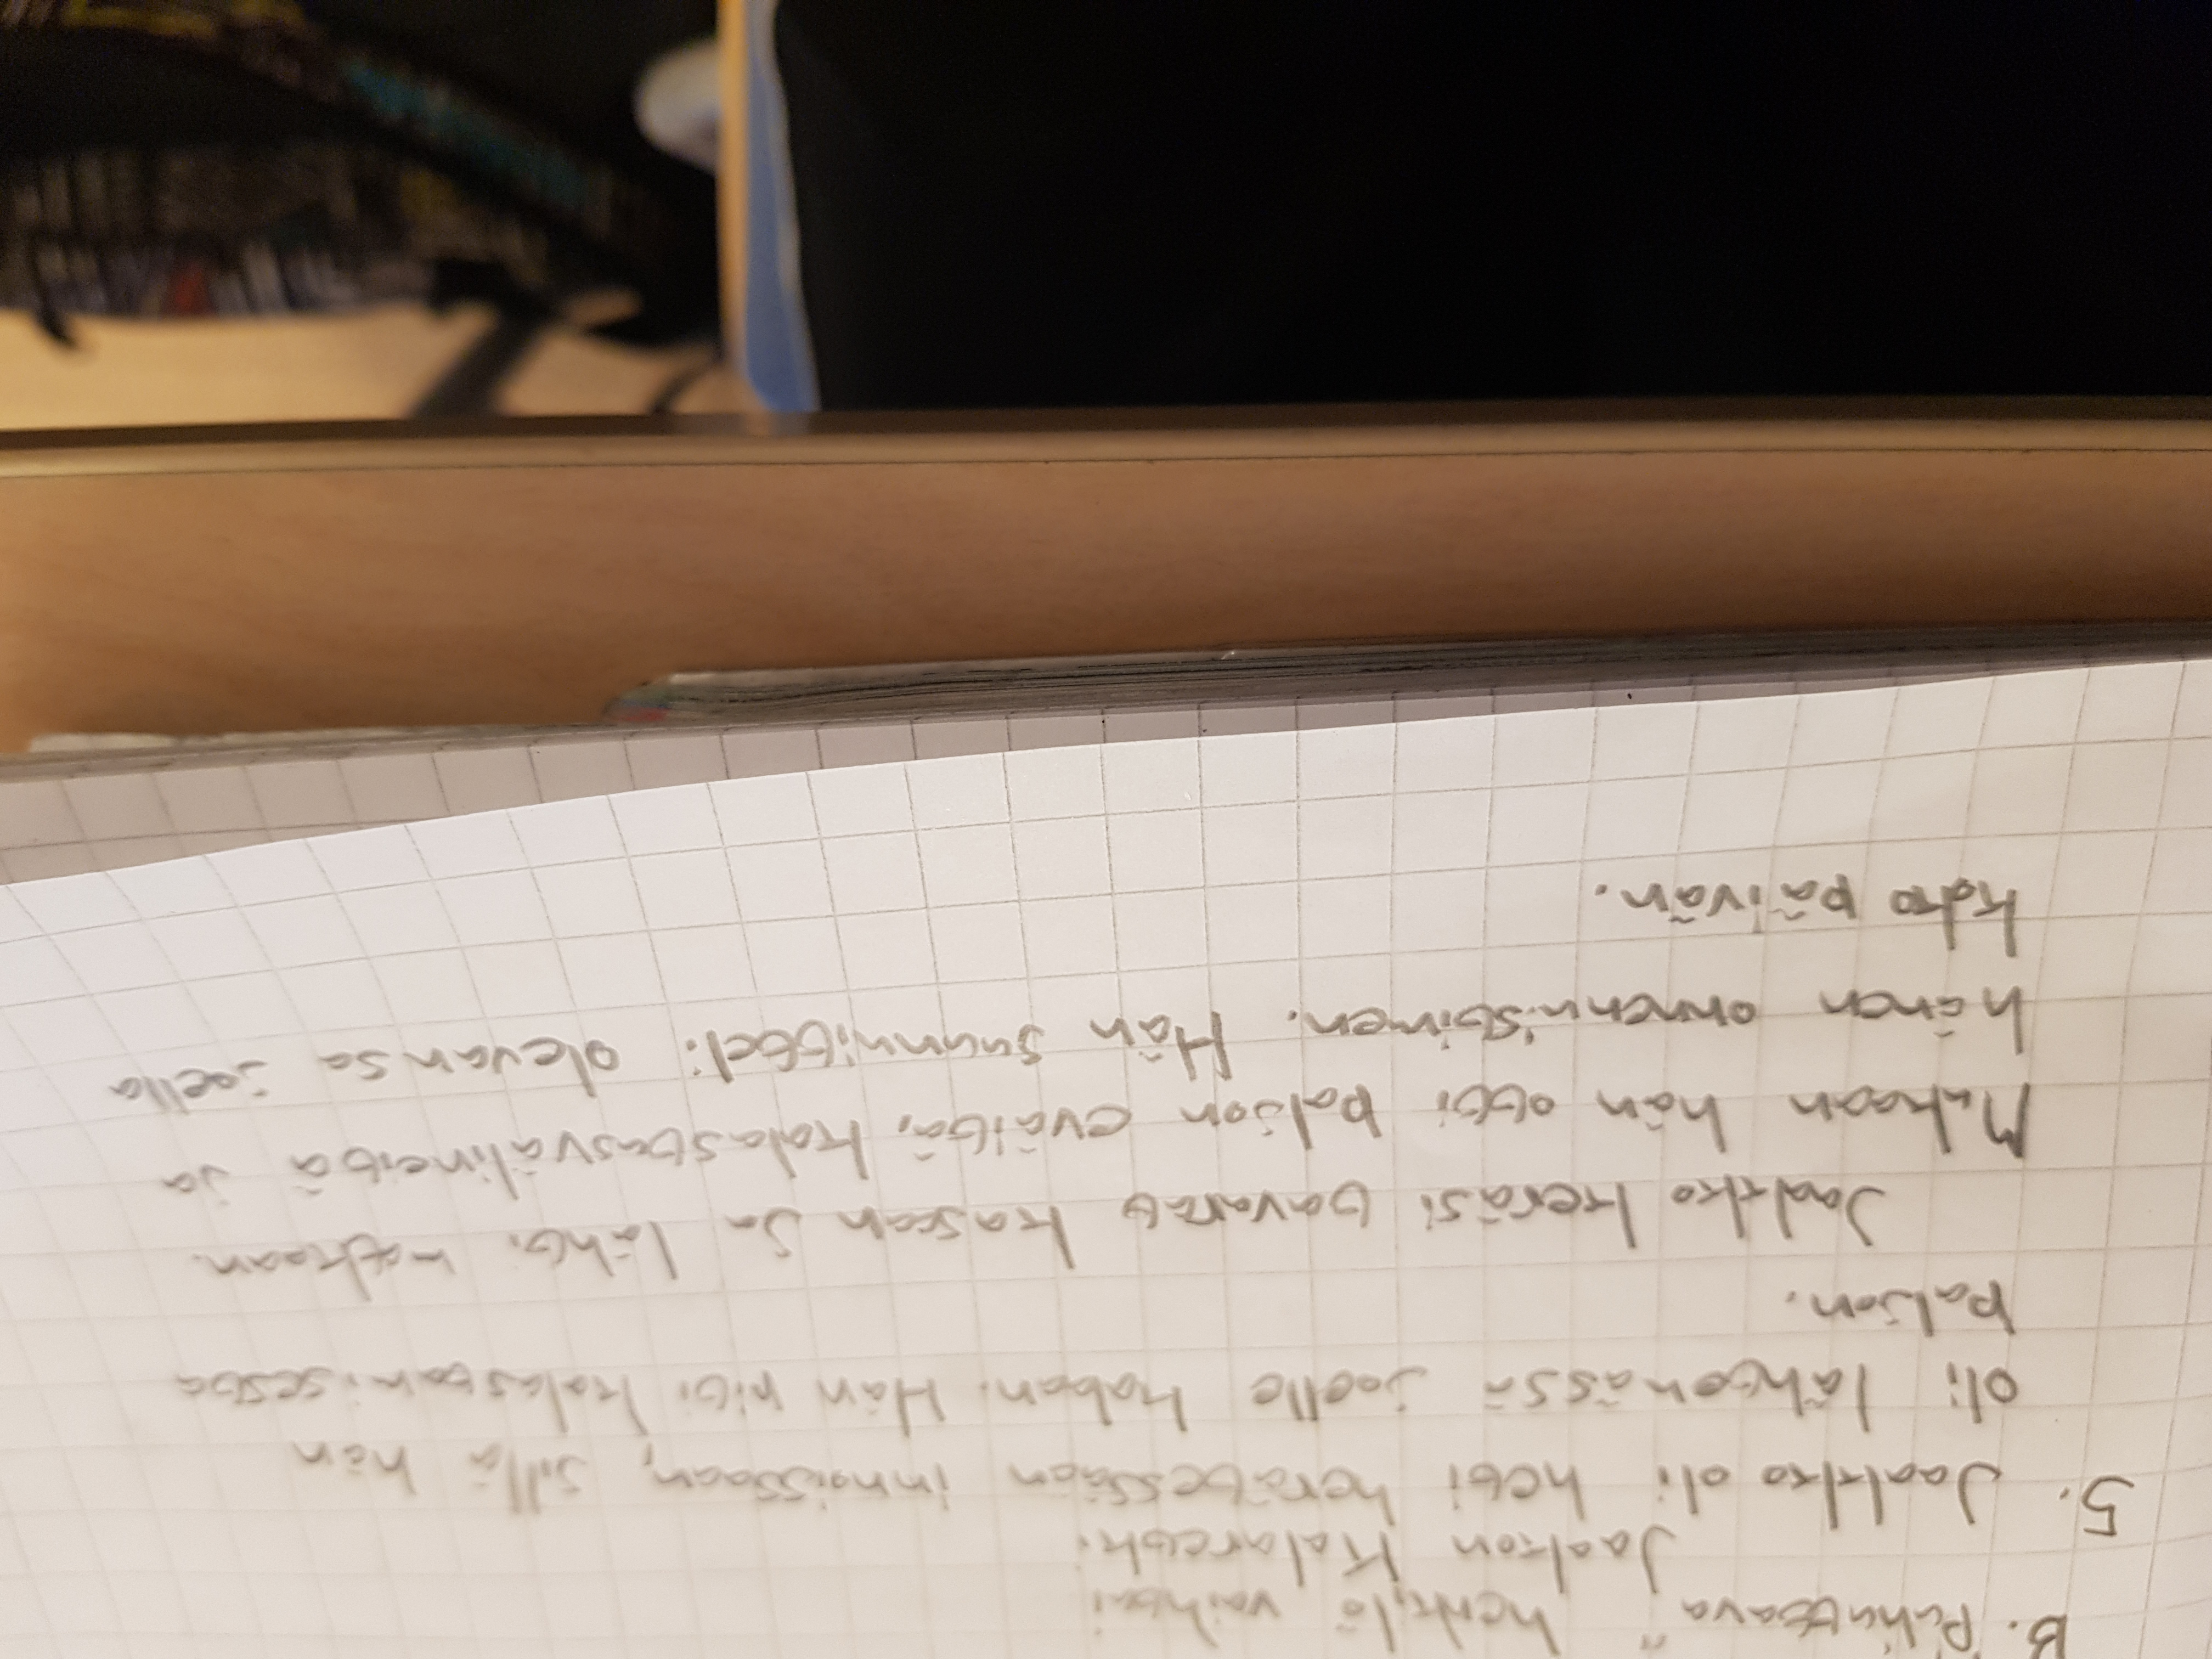 B. Puhuttava henkilö vaihtui
Jaakon Kalaretki
5. Jaakko oli heti herätessään innoissaan, sillä hän
oli lähdenässä joelle kalaan. Hän piti kalastamisesta
paljon.
Jaakko keräsi tavarat kasaan ja lähti matkaan.
Mukaan hän otti paljon eväitä, kalastusvälineitä ja
hänen onnenustoimen. Hän suunnitteli olevansa joella
koko päivän.